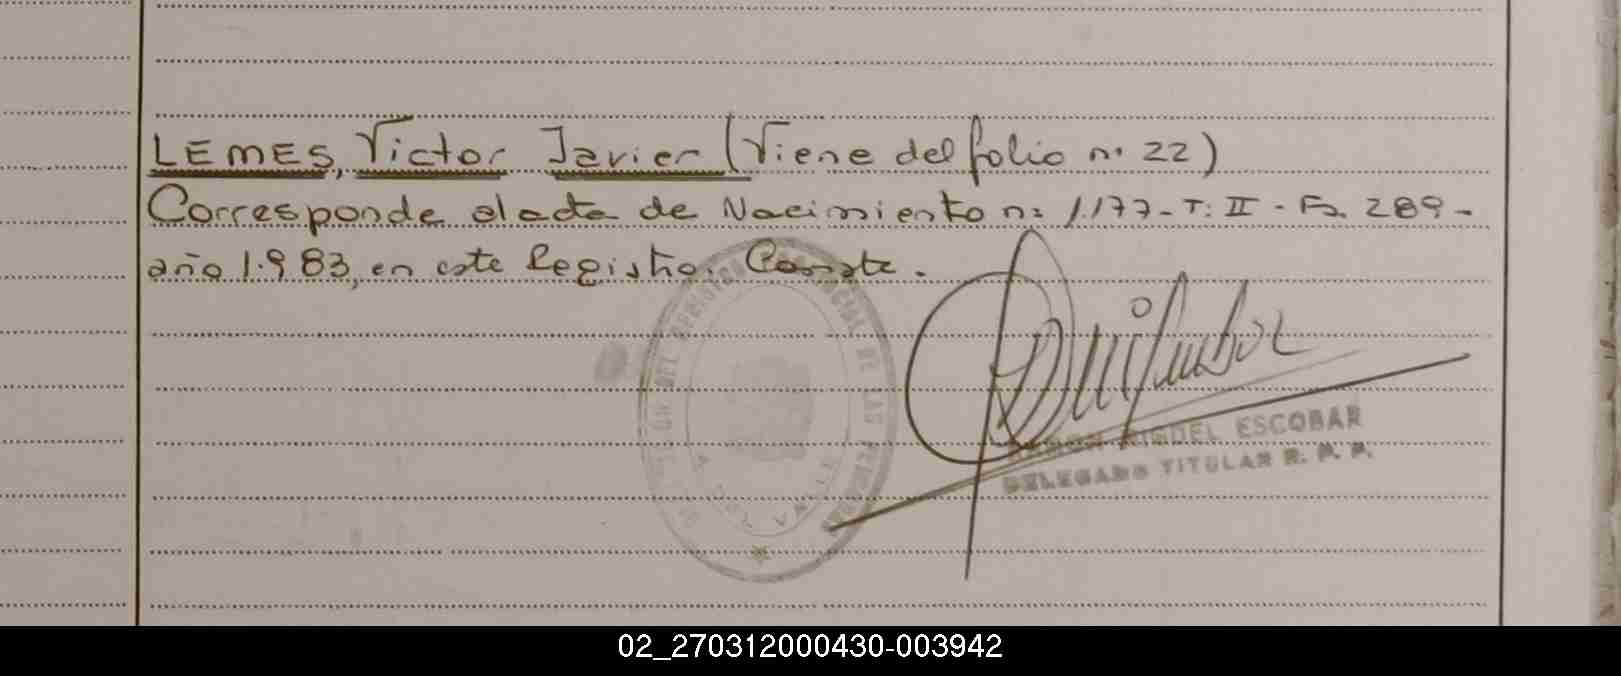 LEMES, Victor Javier (Viene del folio n° 22)
Corresponde al acta de Nacimiento n: 1.177 - T: II - Fo. 289 -
año 1.983, en este Registro. Conste.
RAMON MIGUEL ESCOBAR
DELEGADO TITULAR R. P. P.
02_270312000430-003942